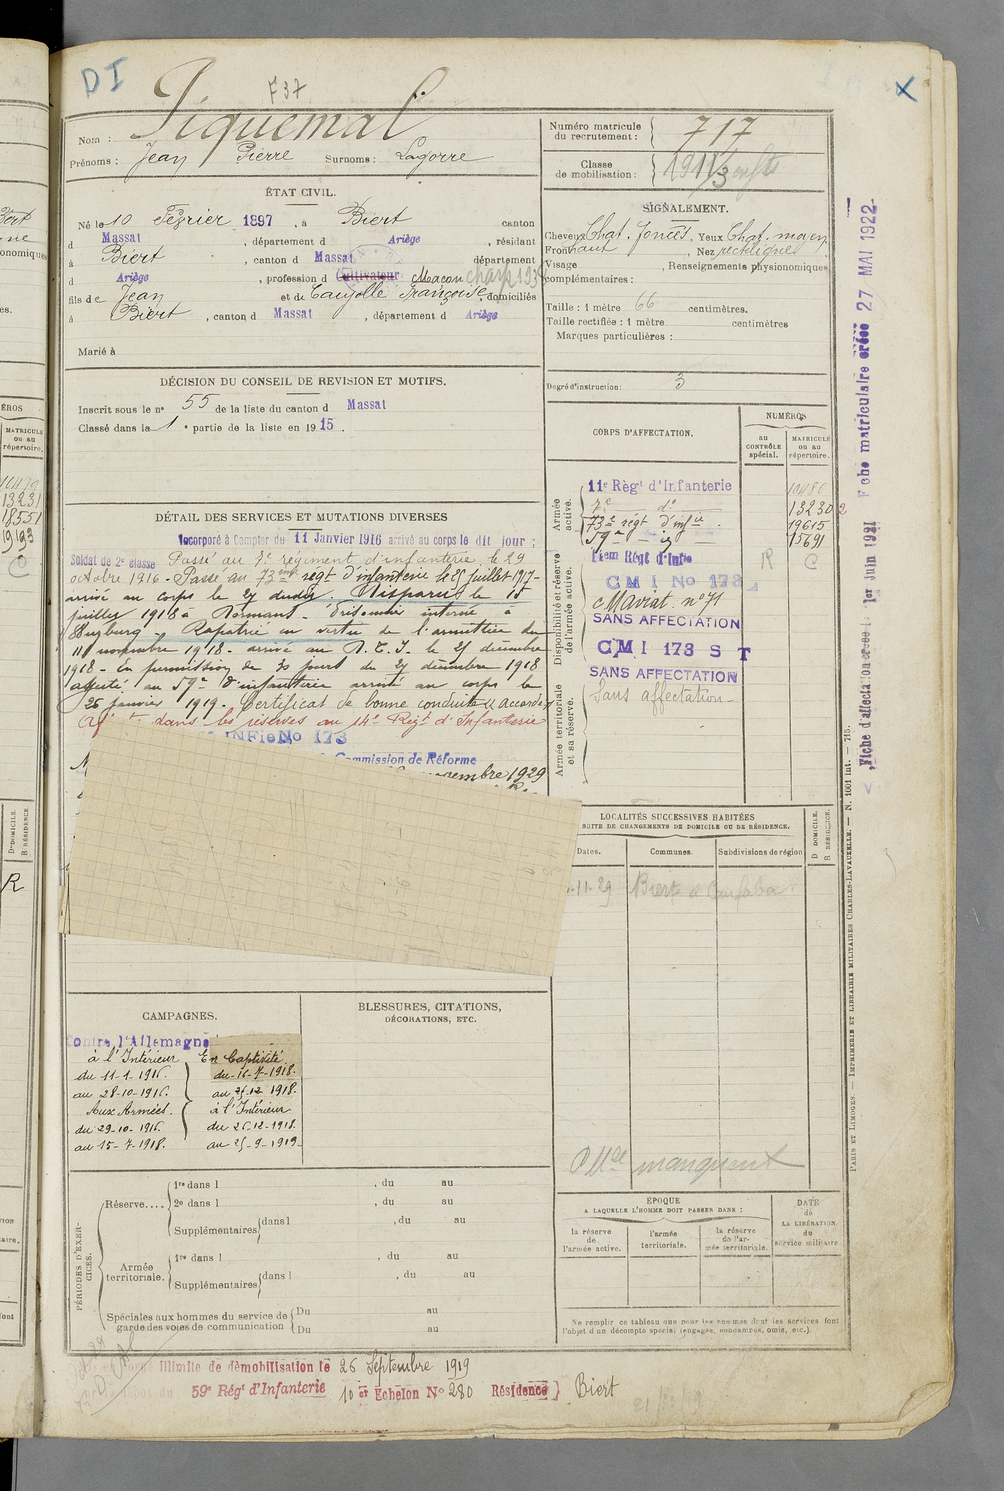 DI
F 37
X
Nom : Piquemal
Prénoms : Jean Pierre Surnoms : Lagorre
Numéro matricule du recrutement : 717
Classe de mobilisation : 1911/3
ÉTAT CIVIL.
Né le 10 Février 1897, à Biert canton
d Massat, département d Ariège, résidant
à Biert, canton d Massat département
d Ariège, profession d Cultivateur Maçon
fils de Jean et de Caujolle Françoise, domiciliés
à Biert, canton d Massat, département d Ariège
Marié à
SIGNALEMENT.
Cheveux Chat. foncés, Yeux Chat. moyen
Front haut, Nez rectiligne
Visage, Renseignements physionomiques
complémentaires :
Taille : 1 mètre 66 centimètres.
Taille rectifiée : 1 mètre centimètres
Marques particulières :
Degré d'instruction : 3
DÉCISION DU CONSEIL DE REVISION ET MOTIFS.
Inscrit sous le n° 55 de la liste du canton d Massat
Classé dans la 1e partie de la liste en 1915.
DÉTAIL DES SERVICES ET MUTATIONS DIVERSES
Incorporé à Compter du 11 Janvier 1916 arrivé au corps le dit jour ;
Soldat de 2e classe Passé au 7e régiment d'infanterie le 29
octobre 1916 - Passé au 73eme régt d'infanterie le 25 juillet 1917 -
arrivé au corps le 27 dudit. Disparu le 15
juillet 1918 à Dormans - Prisonnier interné à
Rapatrié en vertu de l'armistice du
11 novembre 1918 - arrivé au D.T.I. le 25 décembre
1918 - En permission de 30 jours du 27 décembre 1918
affecté au 59e d'infanterie arrivé au corps le
26 janvier 1919. Certificat de bonne conduite accordé
Afté dans les réserves au 14e Régt d'Infanterie
INFie No 173
Commission de Réforme
novembre 1929
CORPS D'AFFECTATION.
NUMÉROS
au CONTRÔLE spécial.
MATRICULE ou au répertoire.
Armée active.
11e Règt d'Infanterie 10480
7e do 13230
73e régt d'infie 19615
59e 15691
Disponibilité et réserve de l'armée active.
14em Régt d'Infie R C
CMI No 173
c Maviat. n° 71
SANS AFFECTATION
CMI 173 S T
SANS AFFECTATION
Armée territoriale et sa réserve.
Sans affectation
LOCALITÉS SUCCESSIVES HABITÉES
SUITE DE CHANGEMENTS DE DOMICILE OU DE RÉSIDENCE.
Dates. Communes. Subdivisions de région D DOMICILE. R RÉSIDENCE.
11-29 Biert
CAMPAGNES.
Contre l'Allemagne
à l'Intérieur
du 11-1-1916.
au 28-10-1916.
Aux Armées.
du 29-10-1916.
au 15-7-1918.
En Captivité.
du 16-7-1918.
au 25-12-1918.
à l'Intérieur
du 26-12-1918.
au 25-9-1919.
BLESSURES, CITATIONS,
DÉCORATIONS, ETC.
manquent
PÉRIODES D'EXERCICES.
Réserve.... 1re dans l , du au
2e dans l , du au
Supplémentaires dans l , du au
Armée territoriale. 1re dans l , du au
Supplémentaires dans l , du au
Spéciales aux hommes du service de garde des voies de communication Du au
Du au
ÉPOQUE
A LAQUELLE L'HOMME DOIT PASSER DANS :
la réserve de l'armée active.
l'armée territoriale.
la réserve de l'armée territoriale.
DATE de LA LIBÉRATION du service militaire.
Ne remplir ce tableau que pour les hommes dont les services font
l'objet d'un décompte spécial (engagés, condamnés, omis, etc.).
illimité de démobilisation le 26 Septembre 1919
59e Régt d'Infanterie 10 er Echelon No 280 Résidence } Biert
Fiche matriculaire créée 27 MAI 1922
Fiche d'affectation créée le 1er Juin 1921
PARIS ET LIMOGES. — IMPRIMERIE ET LIBRAIRIE MILITAIRES CHARLES-LAVAUZELLE. — N. 1001 int. — 715.
MATRICULE
ou au
répertoire.
13231
18551
R